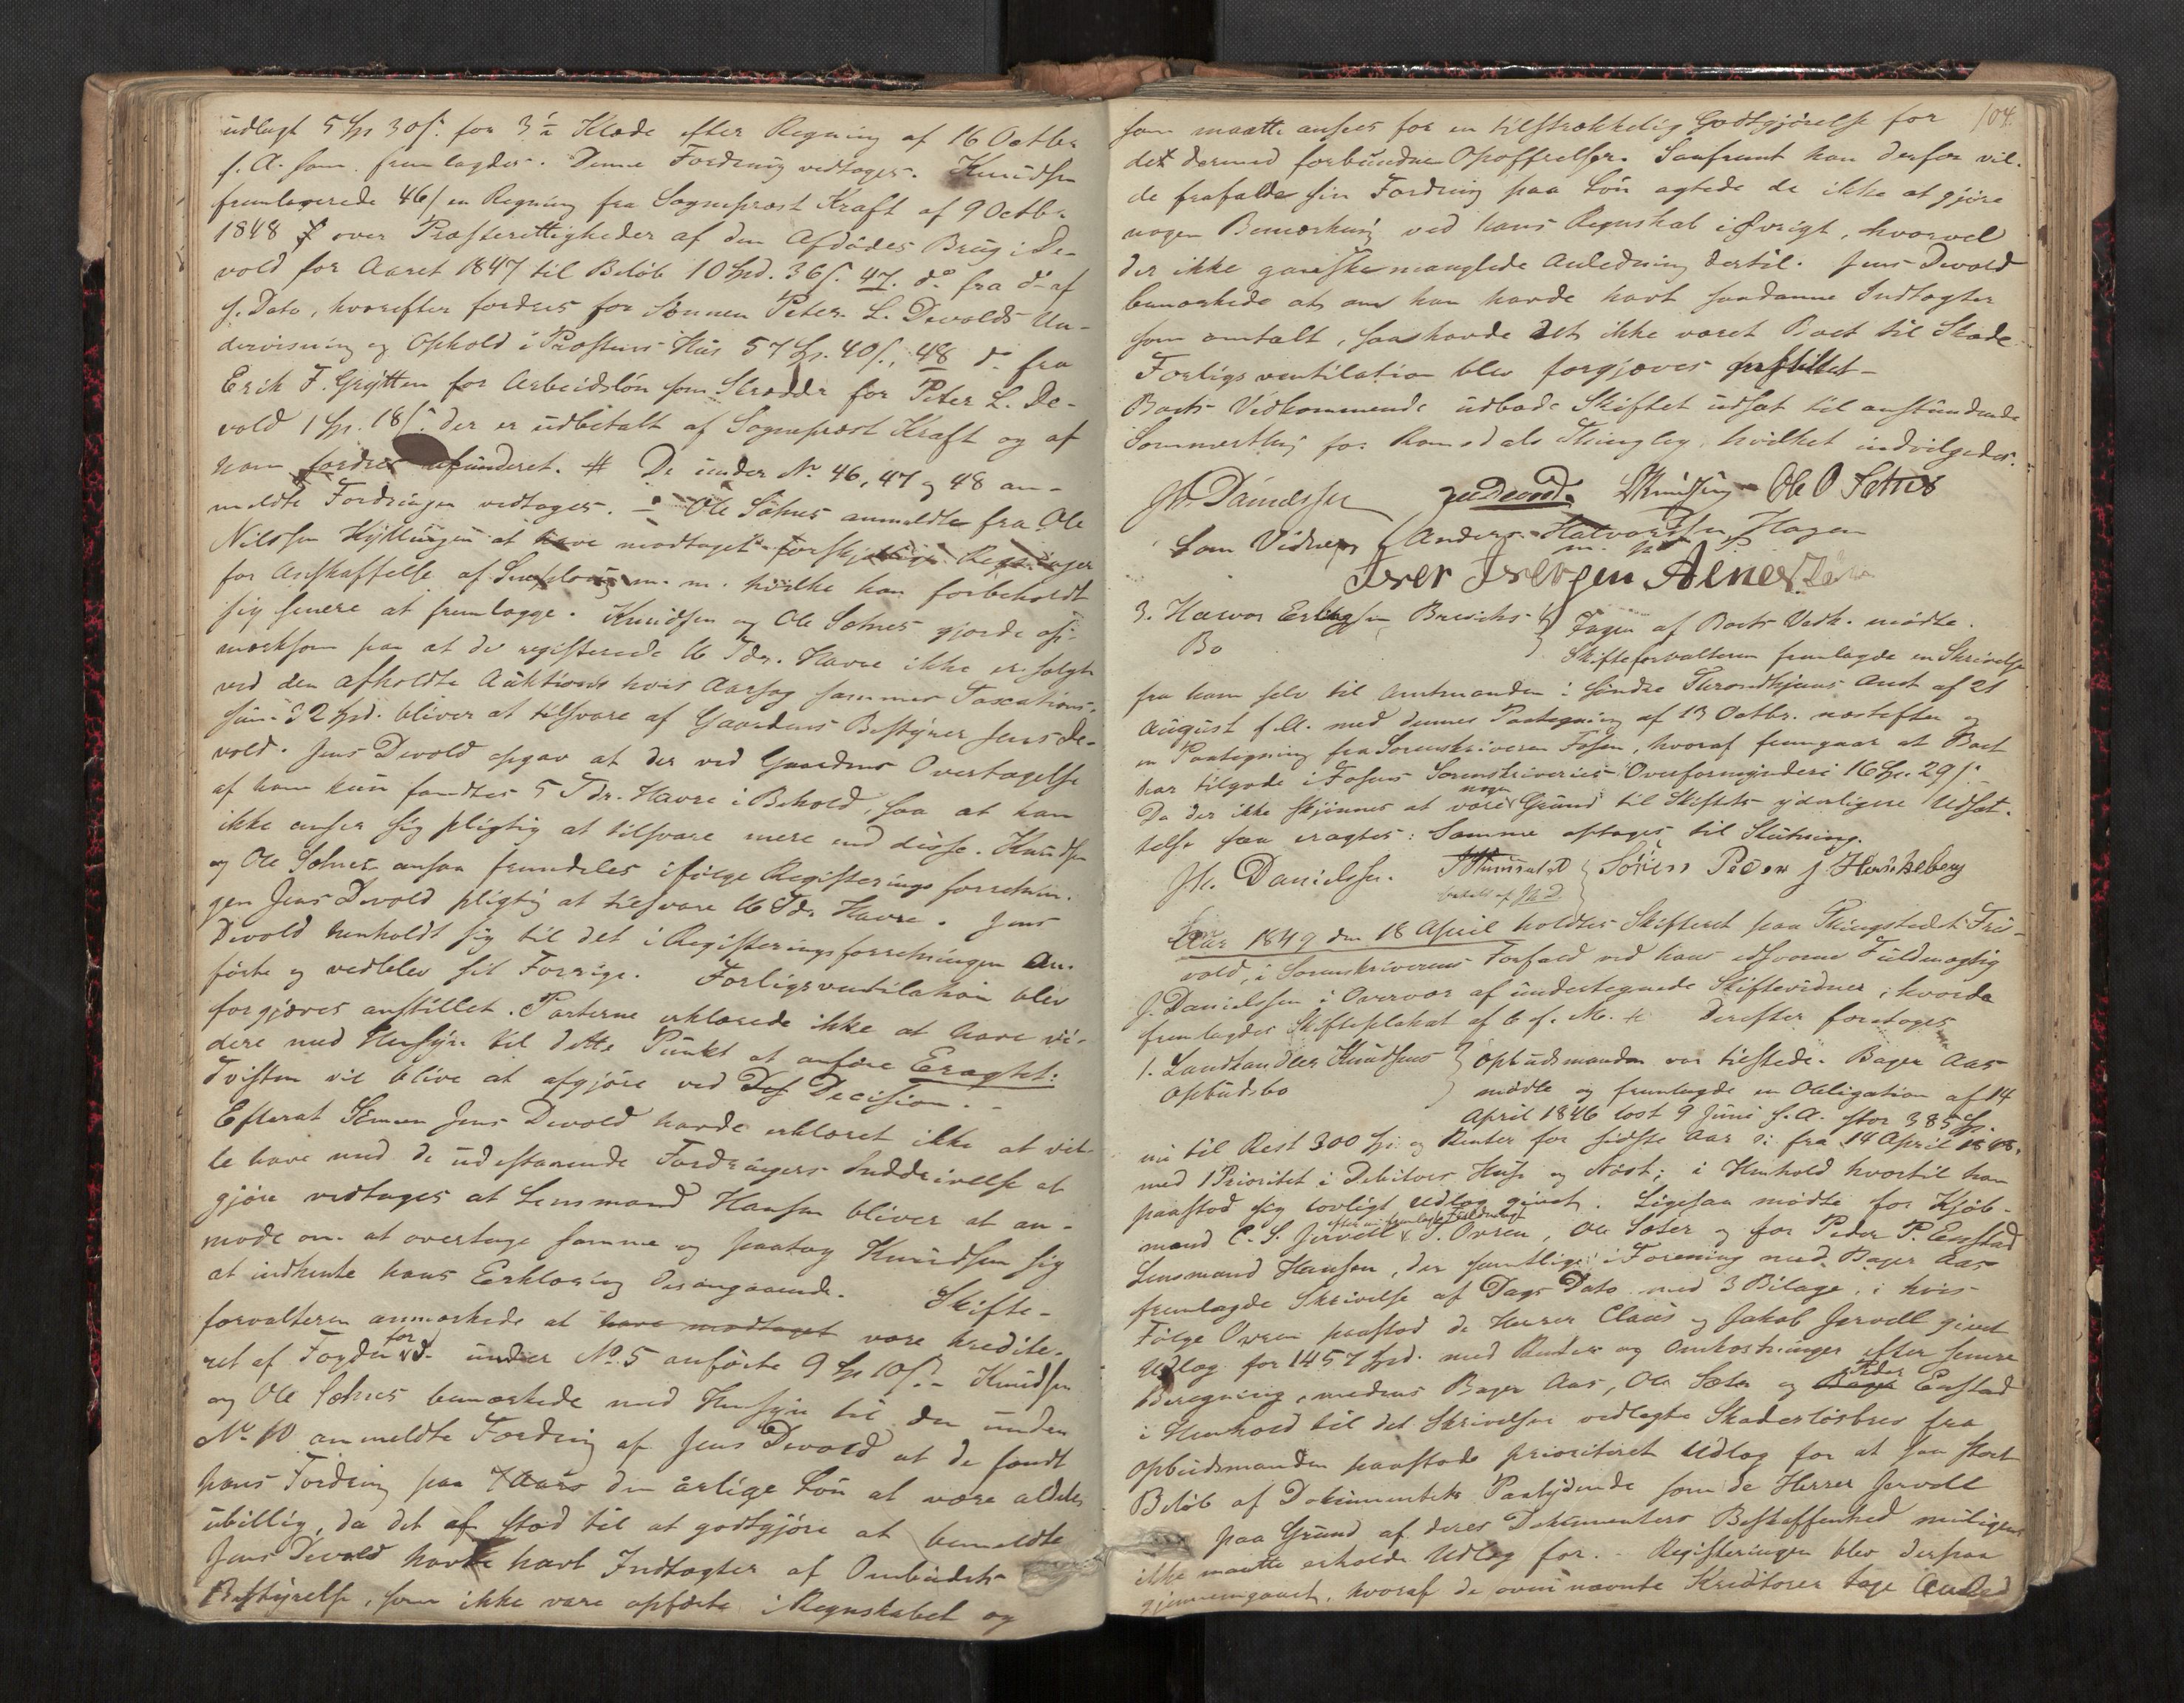 udlagt 5 Spd 30 s. for 3½ Klæde efter Regning af 16 Octbr
f. A. som fremlagdes. Denne Fordring vedtages. Knudsen
fremleverede 46/ en Regning fra Sogneprest Kraft af 9 Octbr
1848 over Præsterettigheder af den Afdødes Brug i De-
vold for Aaret 1847 til Beløb 10 Spd. 36 s. 47. do fra do af
s. Dato, hvorefter fordres for Sønnen Peter L. Devolds Un-
dervisning og Ophold i Præstens Hus 57 Sp. 40 s., 48 do fra
Erik F. Grytten for Arbeidsløn som Skrædder for Peter L. De-
vold 1 Sp. 18 s. der er udbetalt af Sogneprest Kraft og af
ham fordres refunderet. # De under No. 46, 47 og 48 an-
meldte Fordringer vedtages. – Ole Sætnes anmeldte fra Ole
Nilssen Kyllingen at have modtaget forskjellige Regninger
for Anskaffelse af m. m. hvilke han forbeholdt
sig senere at fremlægge. Knudsen og Ole Sætnes gjorde op-
mærksom paa at de registerede 16 Tdr. Havre ikke er solgt
ved den afholdte Auktion hvis Aarsag sammes Taxations-
sum 32 Spd. bliver at tilsvare af Gaardens Bestyrer Jens De-
vold. Jens Devold opgav at der ved Gaardens Overtagelse
af ham kun fandtes 5 Tdr. Havre i Behold, saa at han
ikke anser sig pligtig at tilsvare mere end disse. Knudsen
og Ole Sætnes ansaa fremdeles ifølge Registeringsforretnin-
gen Jens Devold pligtig at tilsvare 16 Tdr Havre. Jens
Devold henholdt sig til det i Registeringsforretningen An-
førte og vedblev sit Forrige. Forligsventilation blev
forgjæves anstillet. Parterne erklærede ikke at have vi-
dere med Hensyn til dette Punkt at anføre Eragtet:
Tvisten vil blive at afgjøre ved Decision. –
Efterat Sønnen Jens Devold havde erklæret ikke at vil-
le have med de udestaaende Fordringers Inddrivelse at
gjøre vedtoges at Lensmand Hansen bliver at an-
mode om at overtage samme og paatog Knudsen sig
at indhente hans Erklæring desangaaende. Skifte-
forvalteren anmærkede at have modtaget være kredite-
ret af Fogden for d. under No. 5 anførte 9 Sp 10 s. – Knudsen
og Ole Sætnes bemærkede med Hensyn til den under
No 10 anmeldte Fordring af Jens Devold at de fandt
hans Fordring paa 7 Aars den årlige Løn at være aldeles
ubillig, da det af stod til at godtgjøre at bemeldte
Jens Devold havde havt Indtægter af Ombudets
Bestyrelse, som ikke vare opførte i Regnskabet og
104.
som maatte ansees for en tilstrækkelig Godtgjørelse for
det dermed forbundne Opoffrelser. Saafremt han derfor vil-
de frafalde sin Fordring paa Løn agtede de ikke at gjøre
nogen Bemærkning ved hans Regnskab iøvrigt, hvorvel
der ikke ganske manglede Anledning dertil. Jens Devold
bemærkede at om han havde havt saadanne Indtægter
som omtalt, saa havde det ikke været Boet til Skade.
Forligsventilation blev forgjæves anstillet –
Boets Vedkommende udbade Skiftet udsat til anstundende
Sommerthing for Romsdals Thinglag, hvilket indvilgedes.
Jh. Danielssen Jens Devold Knudsen Ole O Sætnes
Som Vidner Anders Halvorssen Hagen
m. p. P.
Iver Iversen
3. Halvor Erlingsen Breviks Ingen af Boets Vedk. mødte.
Bo Skifteforvalteren fremlagde en Skrivelse
fra ham selv til Amtmanden i Søndre Throndhjems Amt af 21
August f. A. med dennes Paategning af 13 Octbr. næstefter og
en Paategning fra Sorenskriveren Fosen, hvoraf fremgaar at Boet
har tilgode i Fosens Sorenskriveries Overformynderi 16 Sp. 29 s. –
Da der ikke skjønnes at være nogen Grund til Skiftets yderligere Udsæt-
telse saa eragtes: Samme optages til Slutning.
Jh. Danielssen. Søren Peder J Henkeberg
betalt af Jh D
Aar 1849 den 18 April holdtes Skifteret paa Thingstedet Træ-
vold, i Sorenskriverens Forfald ved hans edsvorne Fuldmægtig
J. Danielssen i Overvær af undertegnede Skiftevidner, hvorda
fremlagdes Skifteplakat af 6 s. M. Derefter foretoges
1. Landhandler Knudsens Opbudsmanden var tilstede. Bager Aas
Opbudsbo mødte og fremlagde en Obligation af 14
April 1846 læst 9 Juni s. A. stor 385 Sp.
nu til Rest 300 Sp. og Renter for sidste Aar o: fra 14 April 1848.
med 1 Prioritet i Debitors Huse og Nøst; i Henhold hvortil han
paastod sig lovligt Udlæg givet. Ligesaa mødte for Kjøb-
mand C. S. Jervell efter en fremlagt Fuldmagt S. Ovren, Ole Sæter og for Peder P. Enstad
Lensmand Hansen, der samtlige i Forening med Bager Aas
fremlagde Skrivelse af Dags Dato med 3 Bilage, i hvis
Følge Ovren paastod de Herrer Claus og Jakob Jervell givet
Udlæg for 1457 Spd. med Renter og Omkostninger efter senere
Beregning, medens Bager Aas, Ole Sæter og Bager Peder Enstad
i Henhold til det Skrivelsen vedlagte Skadesløsbrev fra
Opbudsmanden paastode prioriteret Udlæg for at saa stort
Beløb af Dokumentets Paalydende som de Herrer Jervell
paa Grund af deres Dokumenters Beskaffenhed muligens
ikke maatte erholde Udlæg for. – Registeringen blev derpaa
gjennemgaaet, hvoraf de ovennævnte Kreditorer tage Anled